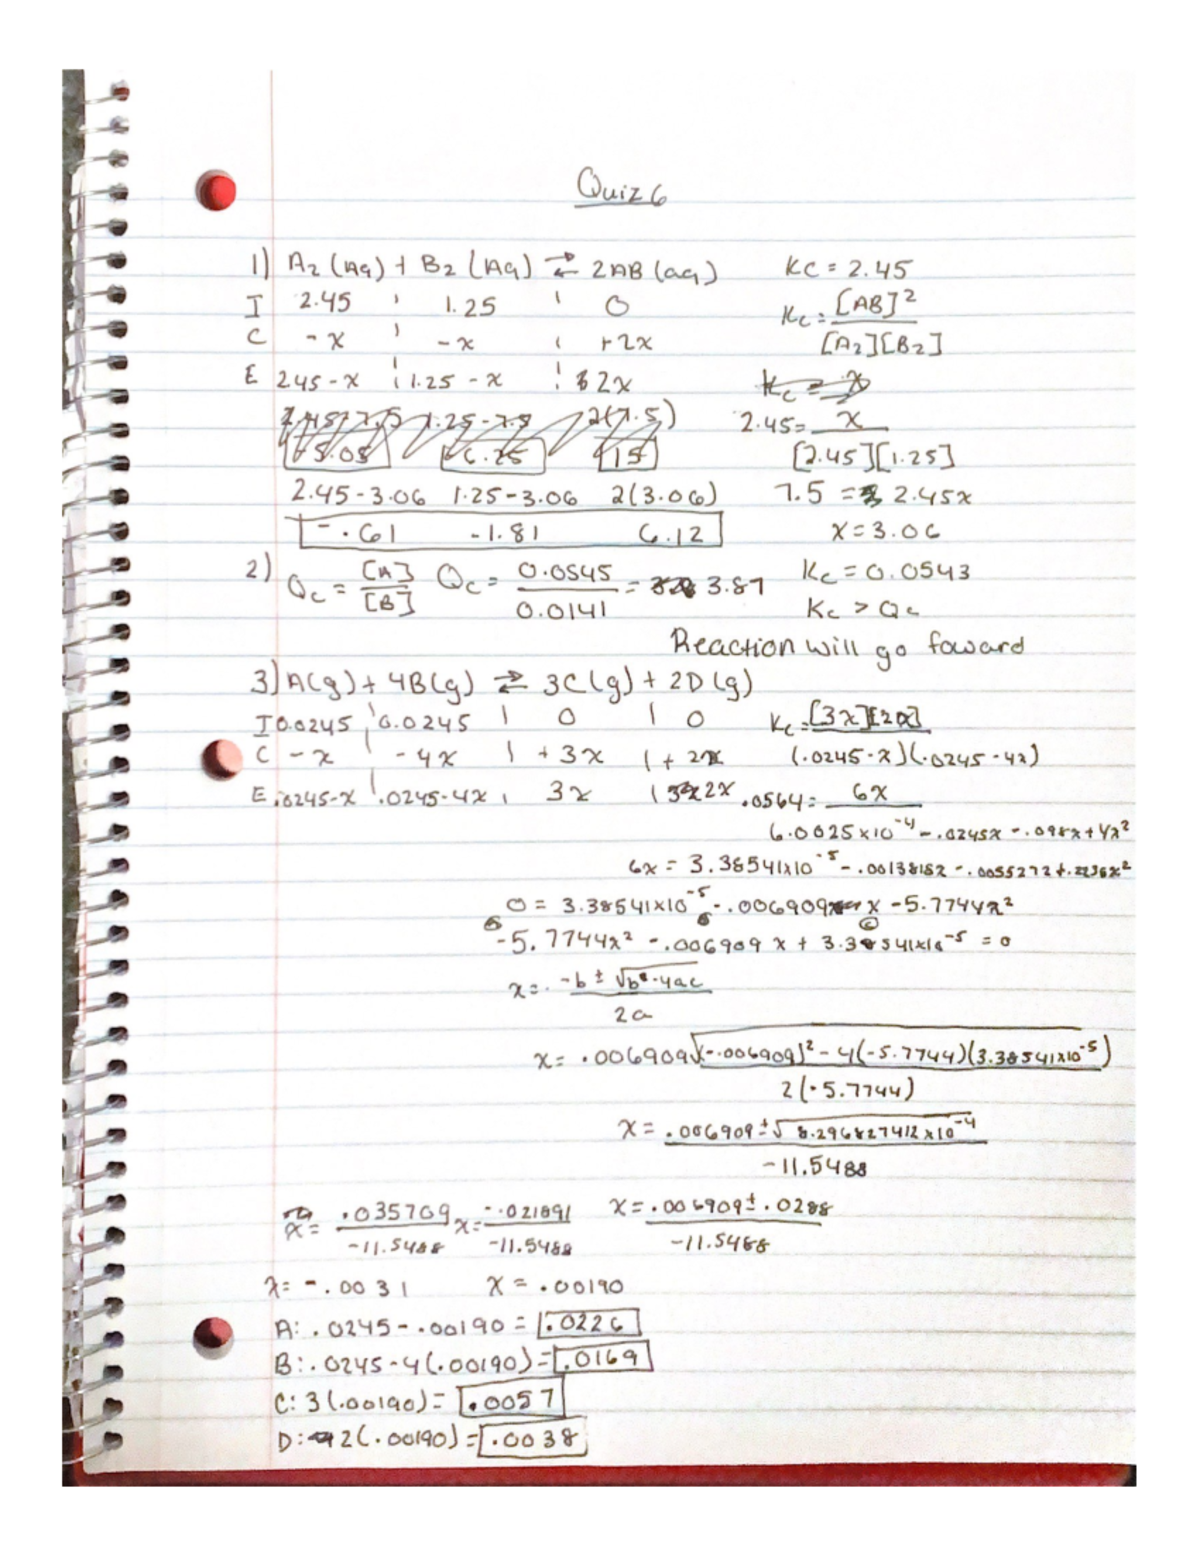 Quiz 6
1) A2 (Aq) + B2 (Aq) ⇌ 2AB (aq) Kc = 2.45
I 2.45 ¦ 1.25 ¦ 0 Kc = [AB]² / [A2][B2]
C -x ¦ -x ¦ +2x
E 2.45-x ¦ 1.25-x ¦ 2x
2.45 = x / [2.45][1.25]
2.45-3.06 1.25-3.06 2(3.06) 7.5 = 2.45x
-.61 -1.81 6.12 x = 3.06
2) Qc = [A] / [B] Qc = 0.0545 / 0.0141 = 3.87 Kc = 0.0543
Kc > Qc
Reaction will go foward
3) A(g) + 4B(g) ⇌ 3C(g) + 2D(g)
I 0.0245 | 0.0245 | 0 | 0 Kc = [3x][2x] / (.0245-x)(.0245-4x)
C -x | -4x | +3x | +2x
E .0245-x | .0245-4x | 3x | 2x .0564 = 6x / 6.0025x10⁻⁴ - .0245x - .098x + 4x²
6x = 3.38541x10⁻⁵ - .0013818x - .0055272 + .2256x²
0 = 3.38541x10⁻⁵ - .006909 x - 5.7744x²
-5.7744x² - .006909 x + 3.38541x10⁻⁵ = 0
x = -b ± √b²-4ac / 2a
x = .006909 √(-.006909)² - 4(-5.7744)(3.38541x10⁻⁵) / 2(-5.7744)
x = .006909 ± √8.296827412x10⁻⁴ / -11.5488
x = .035709 / -11.5488 x = -.021891 / -11.5488 x = .006909 ± .0288 / -11.5488
x = -.0031 x = .00190
A: .0245 - .00190 = .0226
B: .0245 - 4(.00190) = .0169
C: 3(.00190) = .0057
D: 2(.00190) = .0038